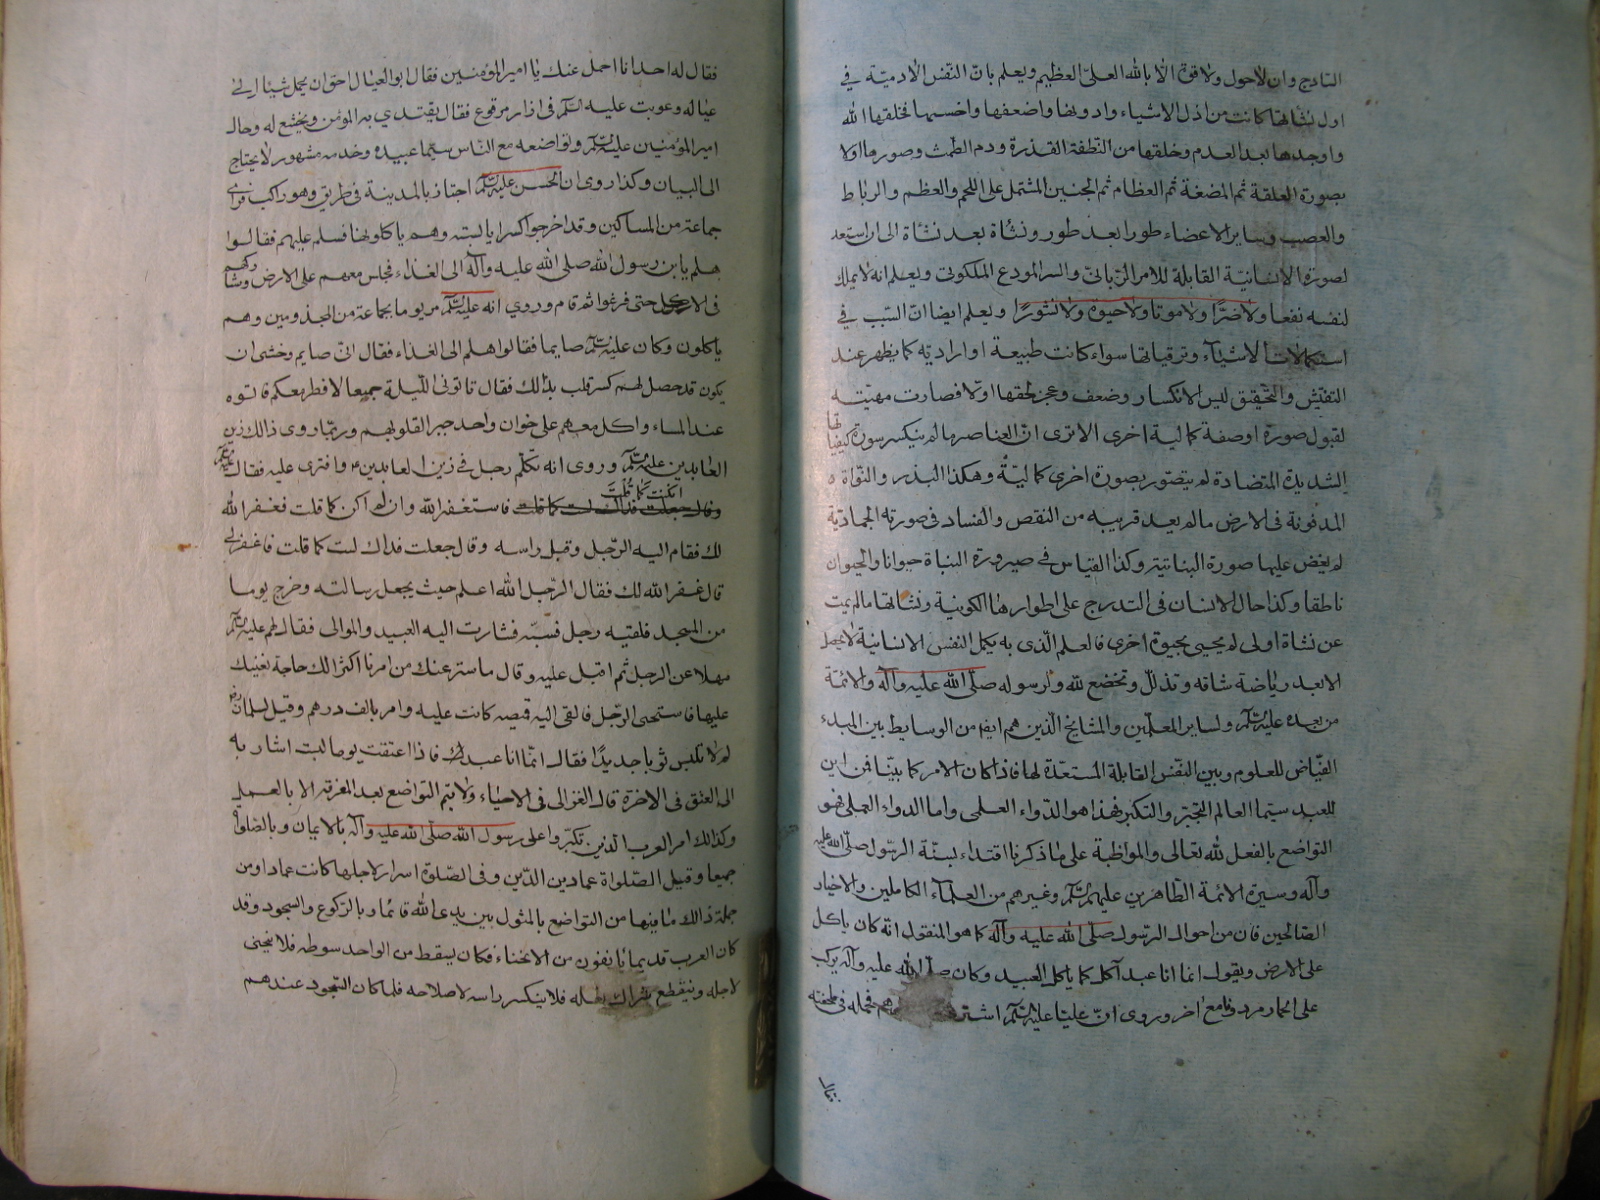 النادج وان لاحول ولا قوة الا بالله العلى العظيم ويعلم بان النفس الادمية في
اول نشأتها كانت من اذل الاشياء وادونها واضعفها واخسها فخلقها الله
واوجدها بعد العدم وخلقها من النطفة القذرة ودم الطمث وصورها اولا
بصورة العلقة ثم المضغة ثم العظام ثم الجنين المشتمل على اللحم والعظم والرباط
والعصب وساير الاعضاء طورا بعد طور ونشأة بعد نشأة الى ان استعد
لصورة الانسانية القابلة للامر الرباني والسر المودع الملكوتي ويعلم انه لا يملك
لنفسه نفعا ولا ضرا ولا موتا ولا حيوة ولا نشورا ويعلم ايضا ان السبب في
استكمالات الاشياء وترقياتها سواء كانت طبيعة او ارادية كما يظهر عند
التفتيش والتحقيق ليس الا نكسار وضعف وعجز لحقها اولا فصارت مهيئة
لقبول صورة اوصفة كمالية اخرى الا ترى ان العناصر مالم ينكسر سورة كيفياتها
الشديدة المتضادة لم يتصور بصورة اخرى كمالية وهكذا البذر والنواة
المدفونة فى الارض مالم يعد قريبه من النقص والفساد فى صورته الجمادية
لم يفض عليها صورة النباتية وكذا القياس في صيرورة النباة حيوانا والحيوان
ناطقا وكذا حال الانسان فى التدرج على اطوارها الكونية ونشأتها مالم يمت
عن نشاة اولى لم يحيى بحيوة اخرى فالعلم الذى به يكمل النفس الانسانية لا يحصل
الا بعد رياضة شاقه وتذلل وتخضع لله ولرسوله صلى الله عليه وآله والائمة
من بعده عليهم السلام ولساير المعلمين والمشايخ الذين هم ايضا من الوسايط بين المبدء
الفياض للعلوم وبين النفس القابلة المستعدة لها فاذا كان الامر كما بينا فمن اين
للعبد سيما العالم التجبر والتكبر فهذا هو الدواء العلمى واما الدواء العملى فهو
التواضع بالفعل لله تعالى والمواظبة على ما ذكرنا اقتداء بسنة الرسول صلى الله عليه
وآله وسيرة الائمة الطاهرين عليهم السلام وغيرهم من العلماء الكاملين والاخيار
الصالحين فان من احوال الرسول صلى الله عليه وآله كما هو المنقول انه كان ياكل
على الارض ويقول انما انا عبد آكل كما ياكل العبيد وكان صلى الله عليه وآله يركب
على الحمار مردفا مع اخر وروى ان عليا عليه السلام اشترى فحمله فى ملحفته
فقال
فقال له احد انا احمل عنك يا امير المؤمنين فقال ابو العيال احق ان يحمل شيئا الى
عياله وعوبت عليه السلم فى ازار مرقوع فقال يقتدي به المؤمن ويخشع له وحال
امير المؤمنين عليه السلم وتواضعه مع الناس سيما عبيده وخدمه مشهور لا يحتاج
الى البيان وكذا روى ان الحسن عليه السلم اجتاز بالمدينة فى طريق وهو راكب فراى
جماعة من المساكين وقد اخرجوا كسرا يابسته وهم ياكلونها فسلم عليهم فقالوا
هلم يابن رسول الله صلى الله عليه وآله الى الغذاء فجلس معهم على الارض وشاركهم
فى الاكل حتى فرغوا ثم قام وروي انه عليه السلم مر يوما بجماعة من المجذومين وهم
ياكلون وكان عليه السلم صايما فقالوا هلم الى الغذاء فقال انى صايم وخشى ان
يكون قد حصل لهم كسر قلب بذالك فقال تاتونى الليلة جميعا لافطر معكم فاتوه
عند المساء واكل معهم على خوان واحد جبرا لقلوبهم وربما روى ذالك زين
العابدين عليه السلم وروى انه تكلم رجل فى زين العابدين ع وافترى عليه فقال
ان كنت كما قلت فاستغفر الله وان لم اكن كما قلت فغفر الله
لك فقام اليه الرجل وقبل راسه وقال جعلت فداك لست كما قلت فاغفر لي
قال غفر الله لك فقال الرجل الله اعلم حيث يجعل رسالته وخرج يوما
من المسجد فلقيه رجل فسبه فثارت اليه العبيد والموالى فقال لهم عليه السلم
مهلا عن الرجل ثم اقبل عليه وقال ما ستر عنك من امرنا اكثر الك حاجة نعينك
عليها فاستحى الرجل فالقى اليه قميصه كانت عليه وامر بالف درهم وقيل لسلمان
لم لا تلبس ثوبا جديدا فقال انما انا عبدك فاذا اعتقت يوما لبست اشار به
الى العتق فى الاخرة قال الغزالى فى الاحياء ولا يتم التواضع بعد المعرفة الا بالعمل
وكذالك امر العرب الذين تكبروا على رسول الله صلى الله عليه وآله بالايمان وبالصلواة
جميعا وقيل الصلواة عماد الدين وفى الصلوة اسرار لاجلها كانت عمادا ومن
جملة ذالك ما فيها من التواضع بالمثول بين يدى الله قائما وبالركوع والسجود وقد
كان العرب قديما يانفون من الانحناء فكان يسقط من الواحد سوطه فلا ينحنى
لاجله وينقطع شراك نعله فلا ينكسر راسه لاصلاحه فلما كان السجود عندهم